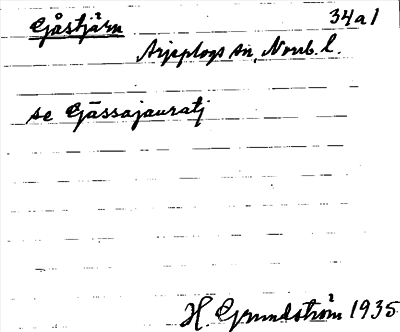 Gåstjärn 34a1
Arjeplogs sn, Norrb. l.
se Gässajauratj
H. Grundström 1935